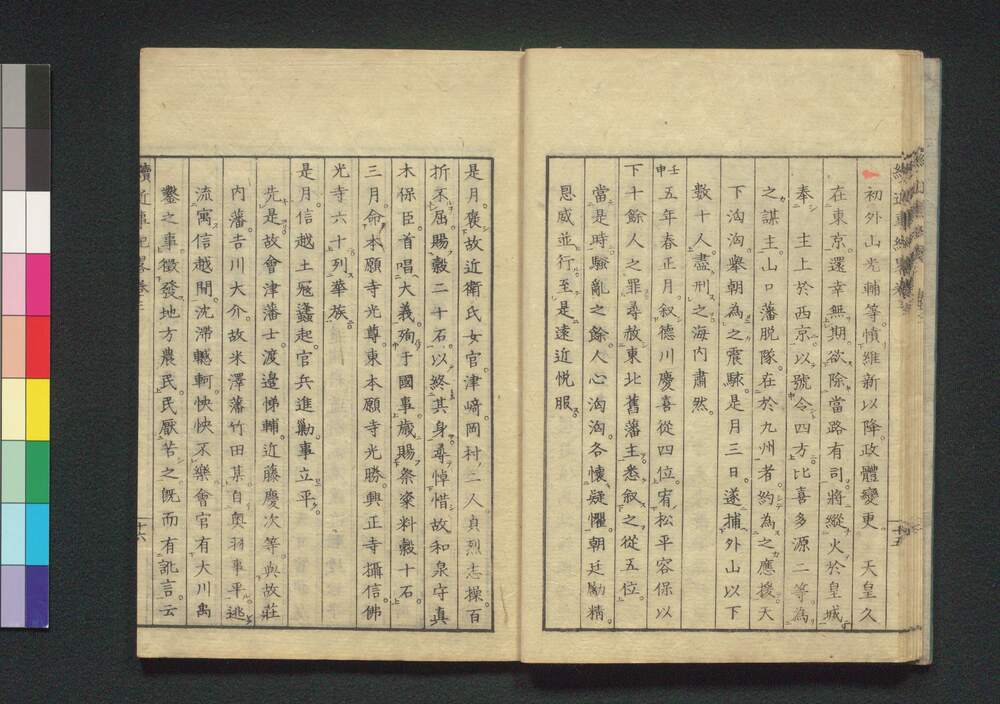 初外山光輔等。憤維新以降。政體變更　天皇久
在東京。還幸無期。欲除當路有司。將縱火於皇城。
奉　主上於西京。以號令四方。比喜多源二等為
之謀主。山口藩脱隊。在於九州者。約為之應援。天
下洶洶。擧朝為之震駭。是月三日。遂捕外山以下
數十人。盡刑之。海内肅然。
壬申五年春正月。叙德川慶喜從四位。宥松平容保以
下十餘人之罪。尋赦東北舊藩主。悉叙之從五位。
當是時。騷亂之餘。人心洶洶。各懷疑懼。朝廷勵精。
恩威並行。至是遠近悦服。
十五
是月。褒故近衛氏女官津﨑。岡村。二人貞烈志操。百
折不屈。賜穀二十石。以終其身。尋悼惜故和泉守真
木保臣。首唱大義。殉于國事。歳賜祭粢料穀十石。
三月。命本願寺光尊。東本願寺光勝。興正寺攝信。佛
光寺六十。列華族。
是月。信越土冦蟻起。官兵進勦。事立平。
先是。故會津藩士。渡邉悌輔。近藤慶次等。與故莊
内藩。𠮷川大介。故米澤藩竹田某。自奥羽事平。逃
流寓信越間。沈滯轗軻。怏怏不樂。會官有大川禹
鑿之事。徵發地方農民。民厭苦之。既而有訛言。云
續近事紀畧 卷三
十六